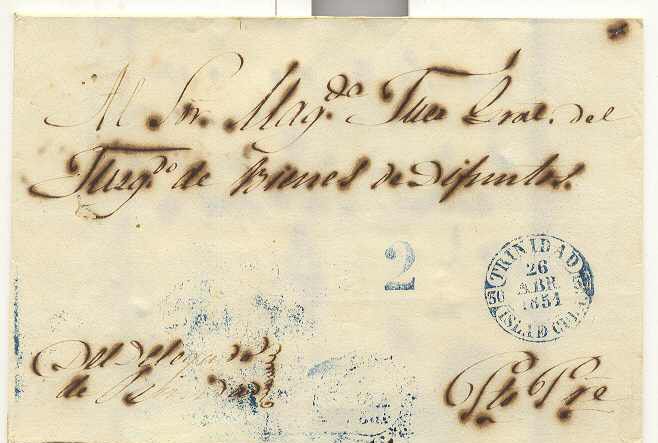 Al Sor. Mag.do Juez Gral. del
Juzg.do de Bienes de Difuntos.
2
TRINIDAD
26
ABR
1851
ISLA DE CUBA
Del
de
Pto Pre